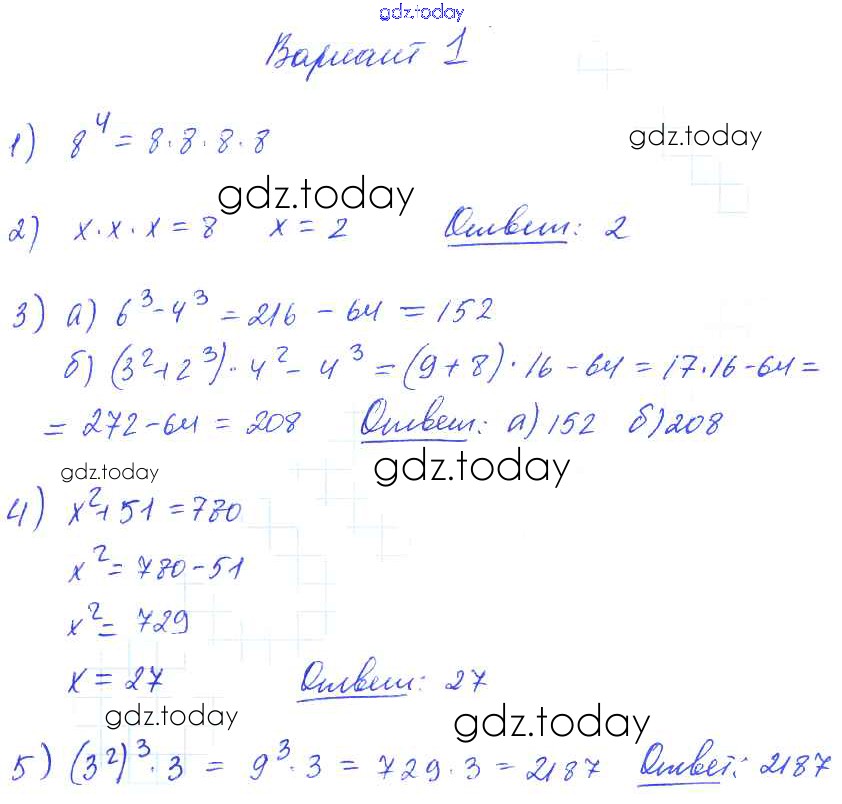 gdz.today
Вариант 1
1) 8⁴ = 8·8·8·8
gdz.today
gdz.today
2) x·x·x = 8 x = 2 Ответ: 2
3) а) 6³-4³ = 216 - 64 = 152
б) (3²+2³)·4² - 4³ = (9+8)·16-64 = 17·16-64 =
= 272-64 = 208 Ответ: а) 152 б) 208
gdz.today gdz.today
4) x²+51 = 780
x² = 780-51
x² = 729
x = 27 Ответ: 27
gdz.today gdz.today
5) (3²)³·3 = 9³·3 = 729·3 = 2187 Ответ: 2187